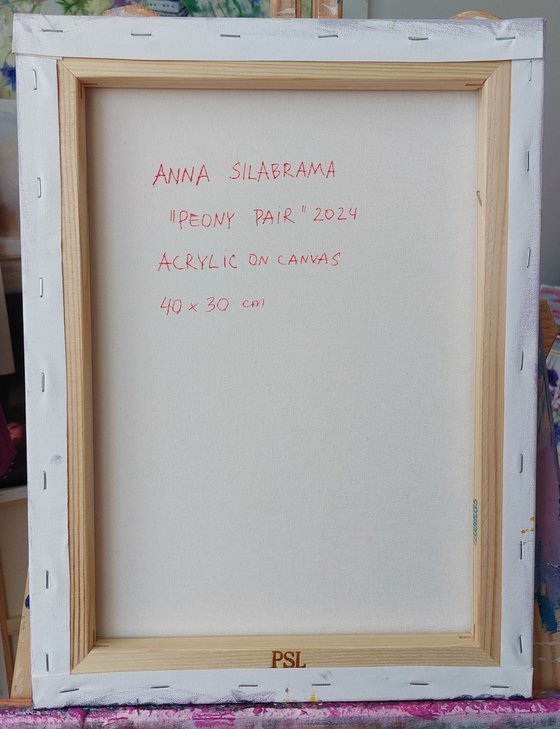 ANNA SILABRAMA
"PEONY PAIR" 2024
ACRYLIC ON CANVAS
40 x 30 cm
PSL